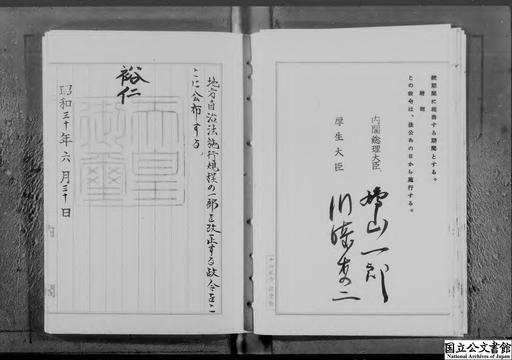 続期間に相当する期間とする。
附則
この政令は、公布の日から施行する。
内閣総理大臣
鳩山一郎
厚生大臣
川崎秀二
地方自治法施行規程の一部を改正する政令をこ
こに公布する
裕仁
天皇御璽
昭和三十年六月三十日
国立公文書館
National Archives of Japan